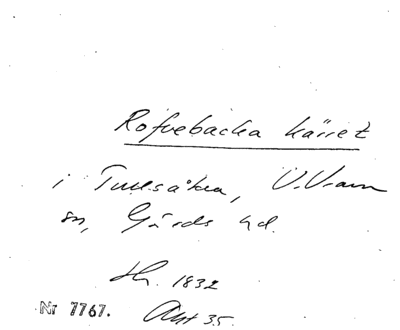 Rofvebacka kärret
i Tullsåkra, V. Vram
sn, Gärds hd.
1832
Nr 7767. Akt 35.